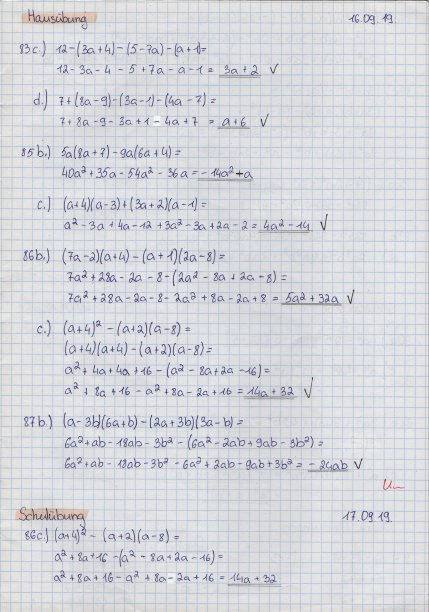 Hausübung 16.09.19.
83c.) 12-(3a+4)-(5-7a)-(a+1)=
12-3a-4-5+7a-a-1= 3a+2 ✓
d.) 7+(8a-9)-(3a-1)-(4a-7)=
7+8a-9-3a+1-4a+7 = a+6 ✓
85b.) 5a(8a+7)-9a(6a+4)=
40a²+35a-54a²-36a=-14a²+a
c.) (a+4)(a-3)+(3a+2)(a-1)=
a²-3a+4a-12+3a²-3a+2a-2=4a²-14 ✓
86b.) (7a-2)(a+4)-(a+1)(2a-8)=
7a²+28a-2a-8-(2a²-8a+2a-8)=
7a²+28a-2a-8-2a²+8a-2a+8=5a²+32a ✓
c.) (a+4)²-(a+2)(a-8)=
(a+4)(a+4)-(a+2)(a-8)=
a²+4a+4a+16-(a²-8a+2a-16)=
a²+8a+16-a²+8a-2a+16=14a+32 ✓
87b.) (a-3b)(6a+b)-(2a+3b)(3a-b)=
6a²+ab-18ab-3b²-(6a²-2ab+9ab-3b²)=
6a²+ab-18ab-3b²-6a²+2ab-9ab+3b²=-24ab ✓
Schulübung 17.09.19.
86c.) (a+4)²-(a+2)(a-8)=
a²+8a+16-(a²-8a+2a-16)=
a²+8a+16-a²+8a-2a+16=14a+32